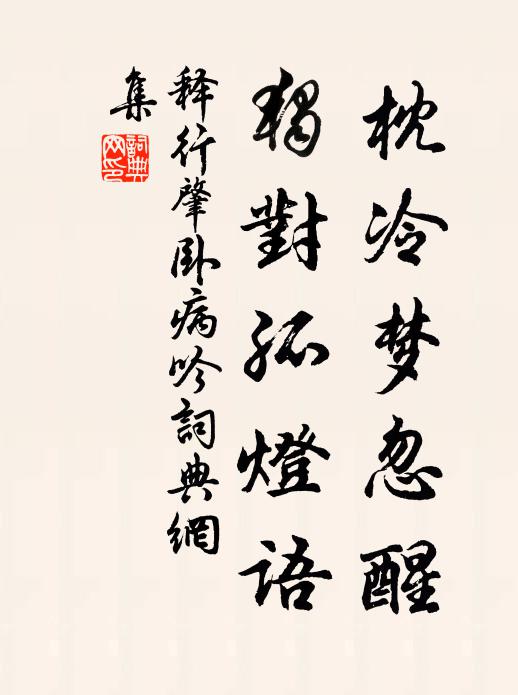 枕冷梦忽醒
獨對孤燈语
释行肇卧病吟詞典網
集
詞典网印